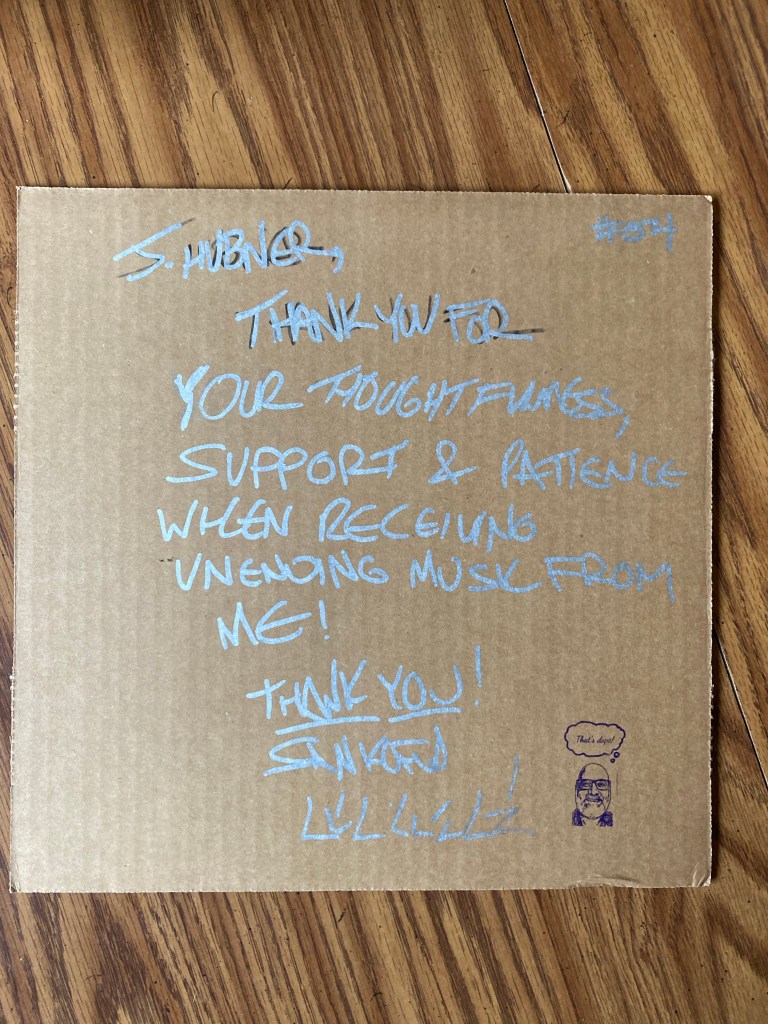 J. HUBNER,
THANK YOU FOR
YOUR THOUGHTFULNESS,
SUPPORT & PATIENCE
WHEN RECEIVING
UNENDING MUSIC FROM
ME!
THANK YOU!
That's dope!